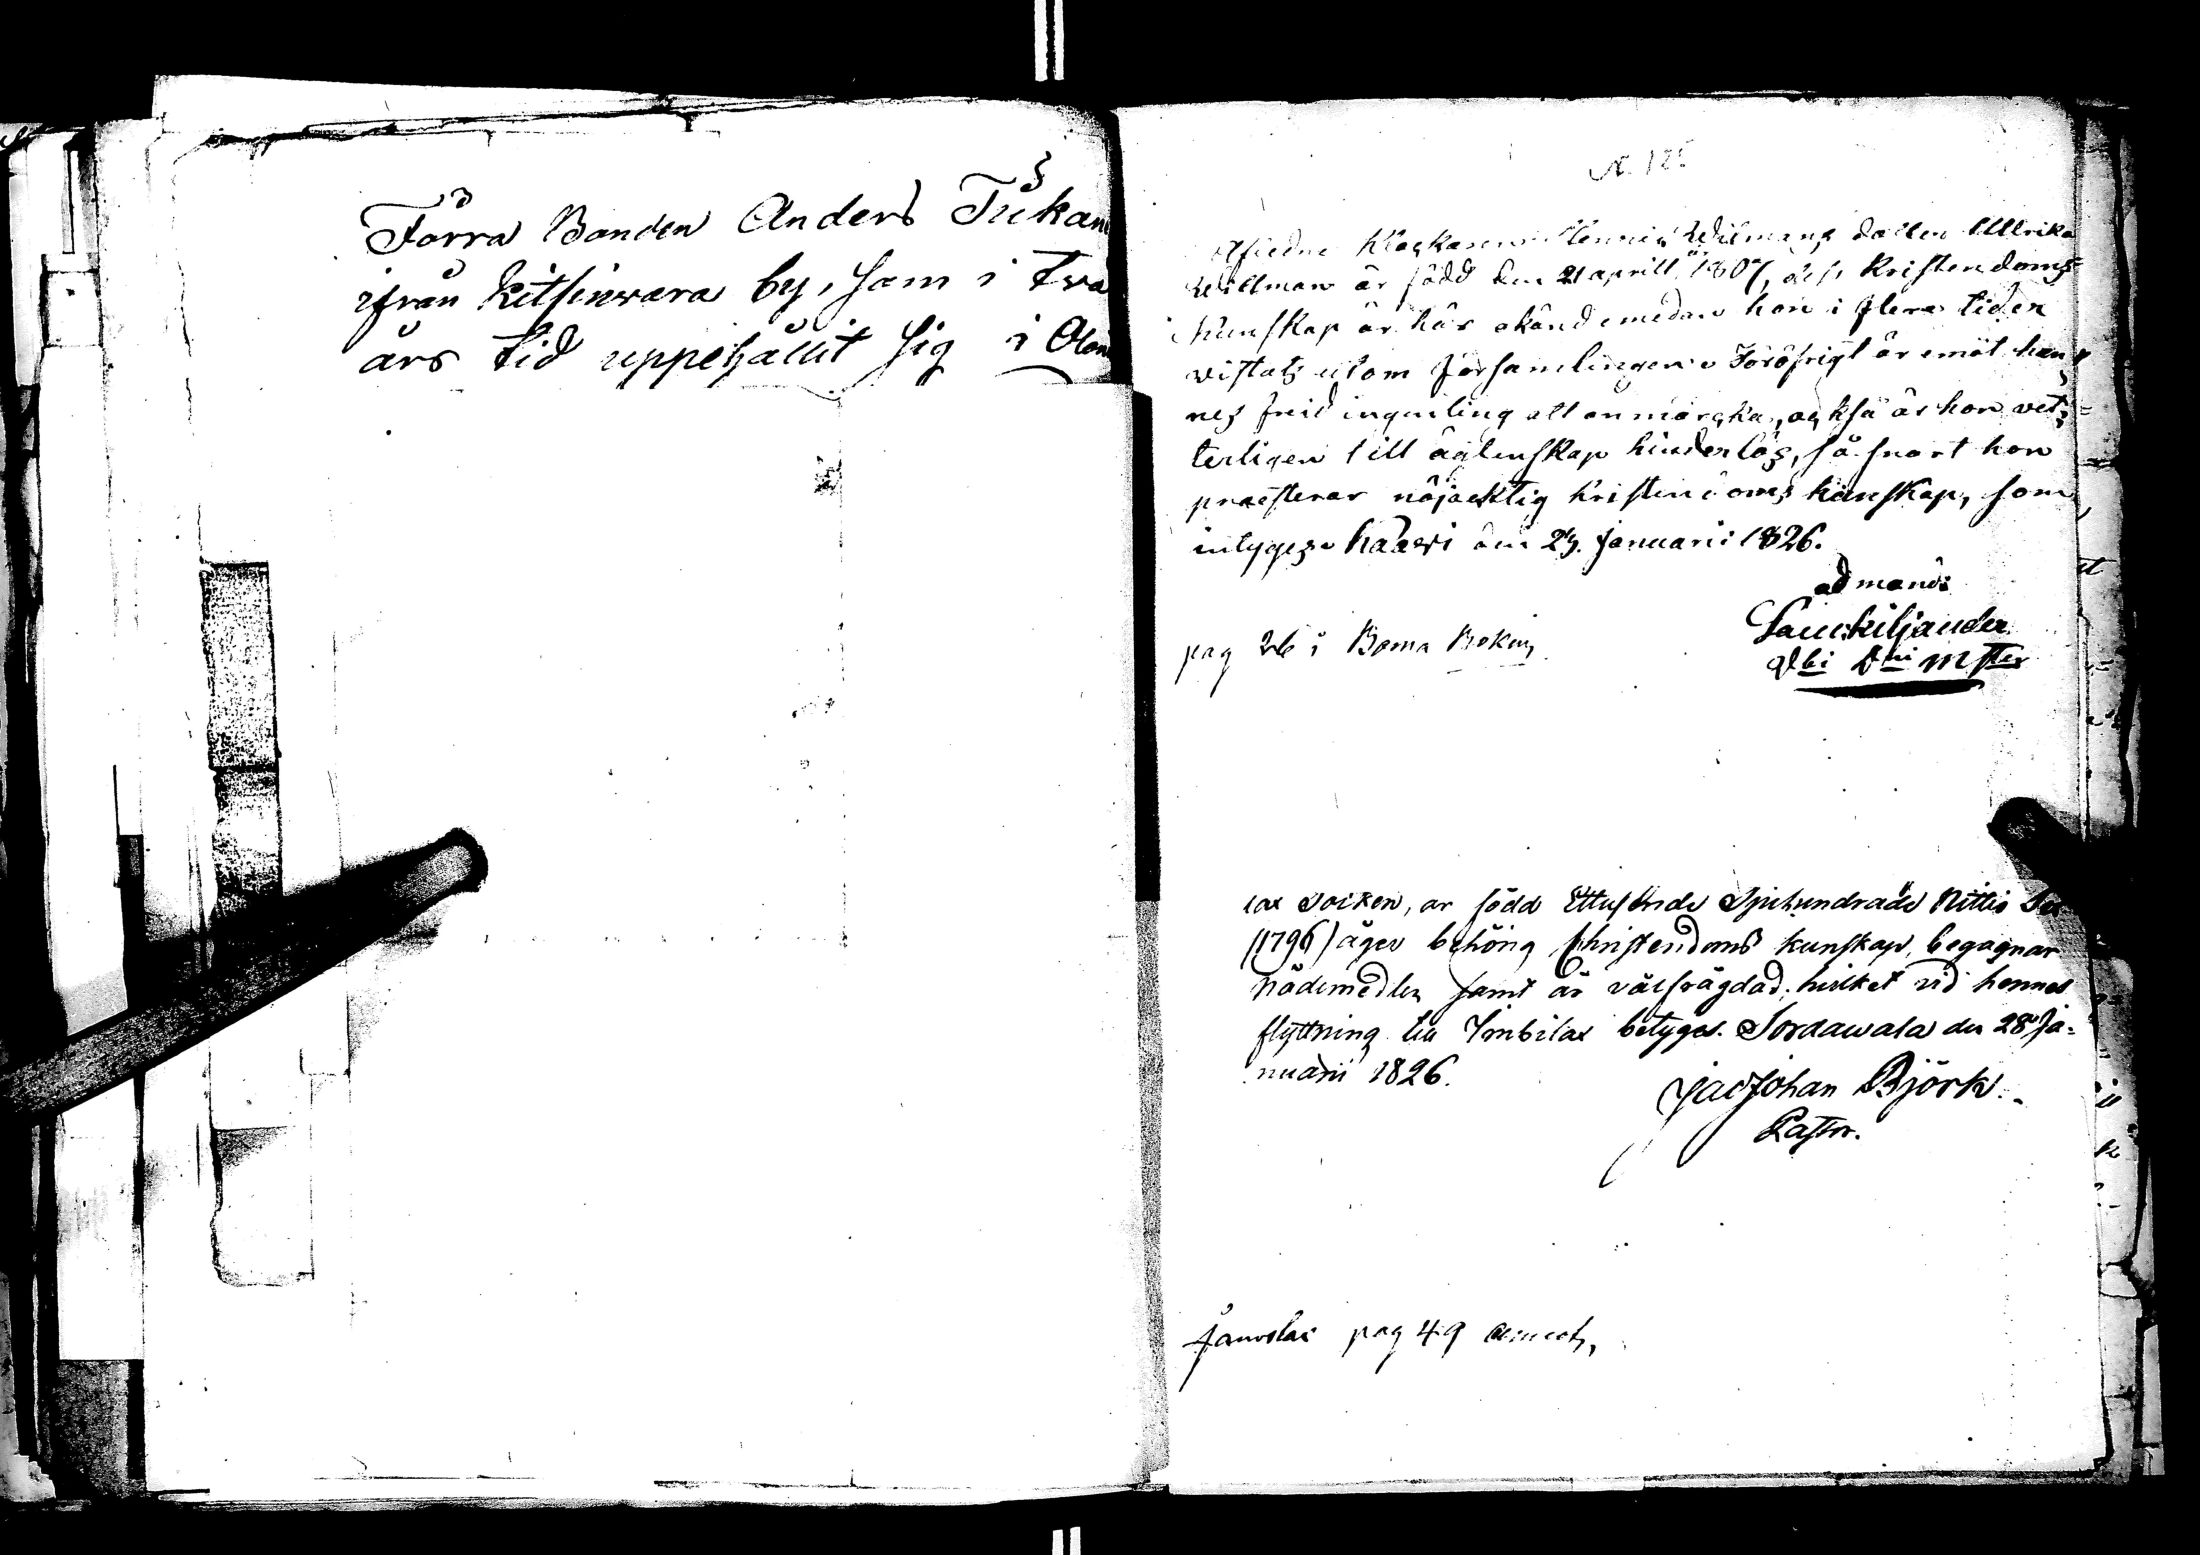 Förra Bonden Anders Tukan
ifrån Kitsinwara by, som i två
års tid uppehållit sig i Olon
N. 125
Afledne Klockaren Hennis Willmans dotter Ullrika
Willman är född den 21 aprill 1807, dess Kristendoms
kunskap är här okänd emedan hon i flera tider
vistats utom församlingen. Föröfrigt är emot hen
nes frid ingenting att anmärka, också är hon vet=
terligen till ägtenskap hinderlös, så snart hon
præsterar nöjacktig Kristendoms kunskap, som
intygas. Kaavi den 23. Januarii 1826.
ad mand:
Lau: Kiljander
Vbi Dni Mster
pag 26 i Boma Boken,
lax Socken, är född Ettusende Sjuhundrade Nittio Sex
(1796) äger behörig Christendoms kunskap, begagnar
Nådemedlen samt är välfrägdad; hvilket vid hennes
flyttning till Imbilax betyges. Sordawala den 28 Ja=
nuarii 1826.
Jac Johan Björk.
Pastor.
pag 49